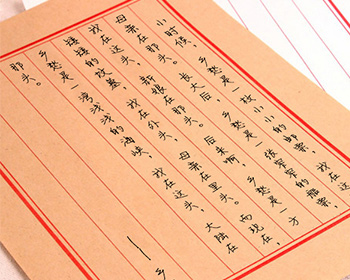 小时候，乡愁是一枚小小的邮票，
母亲在那头。长大后，乡愁是一张窄窄的船票，
我在这头，新娘在那头。后来啊，乡愁是一方
矮矮的坟墓，我在外头，母亲在里头。而现在，
乡愁是一湾浅浅的海峡，我在这头，大陆在
那头。
——乡